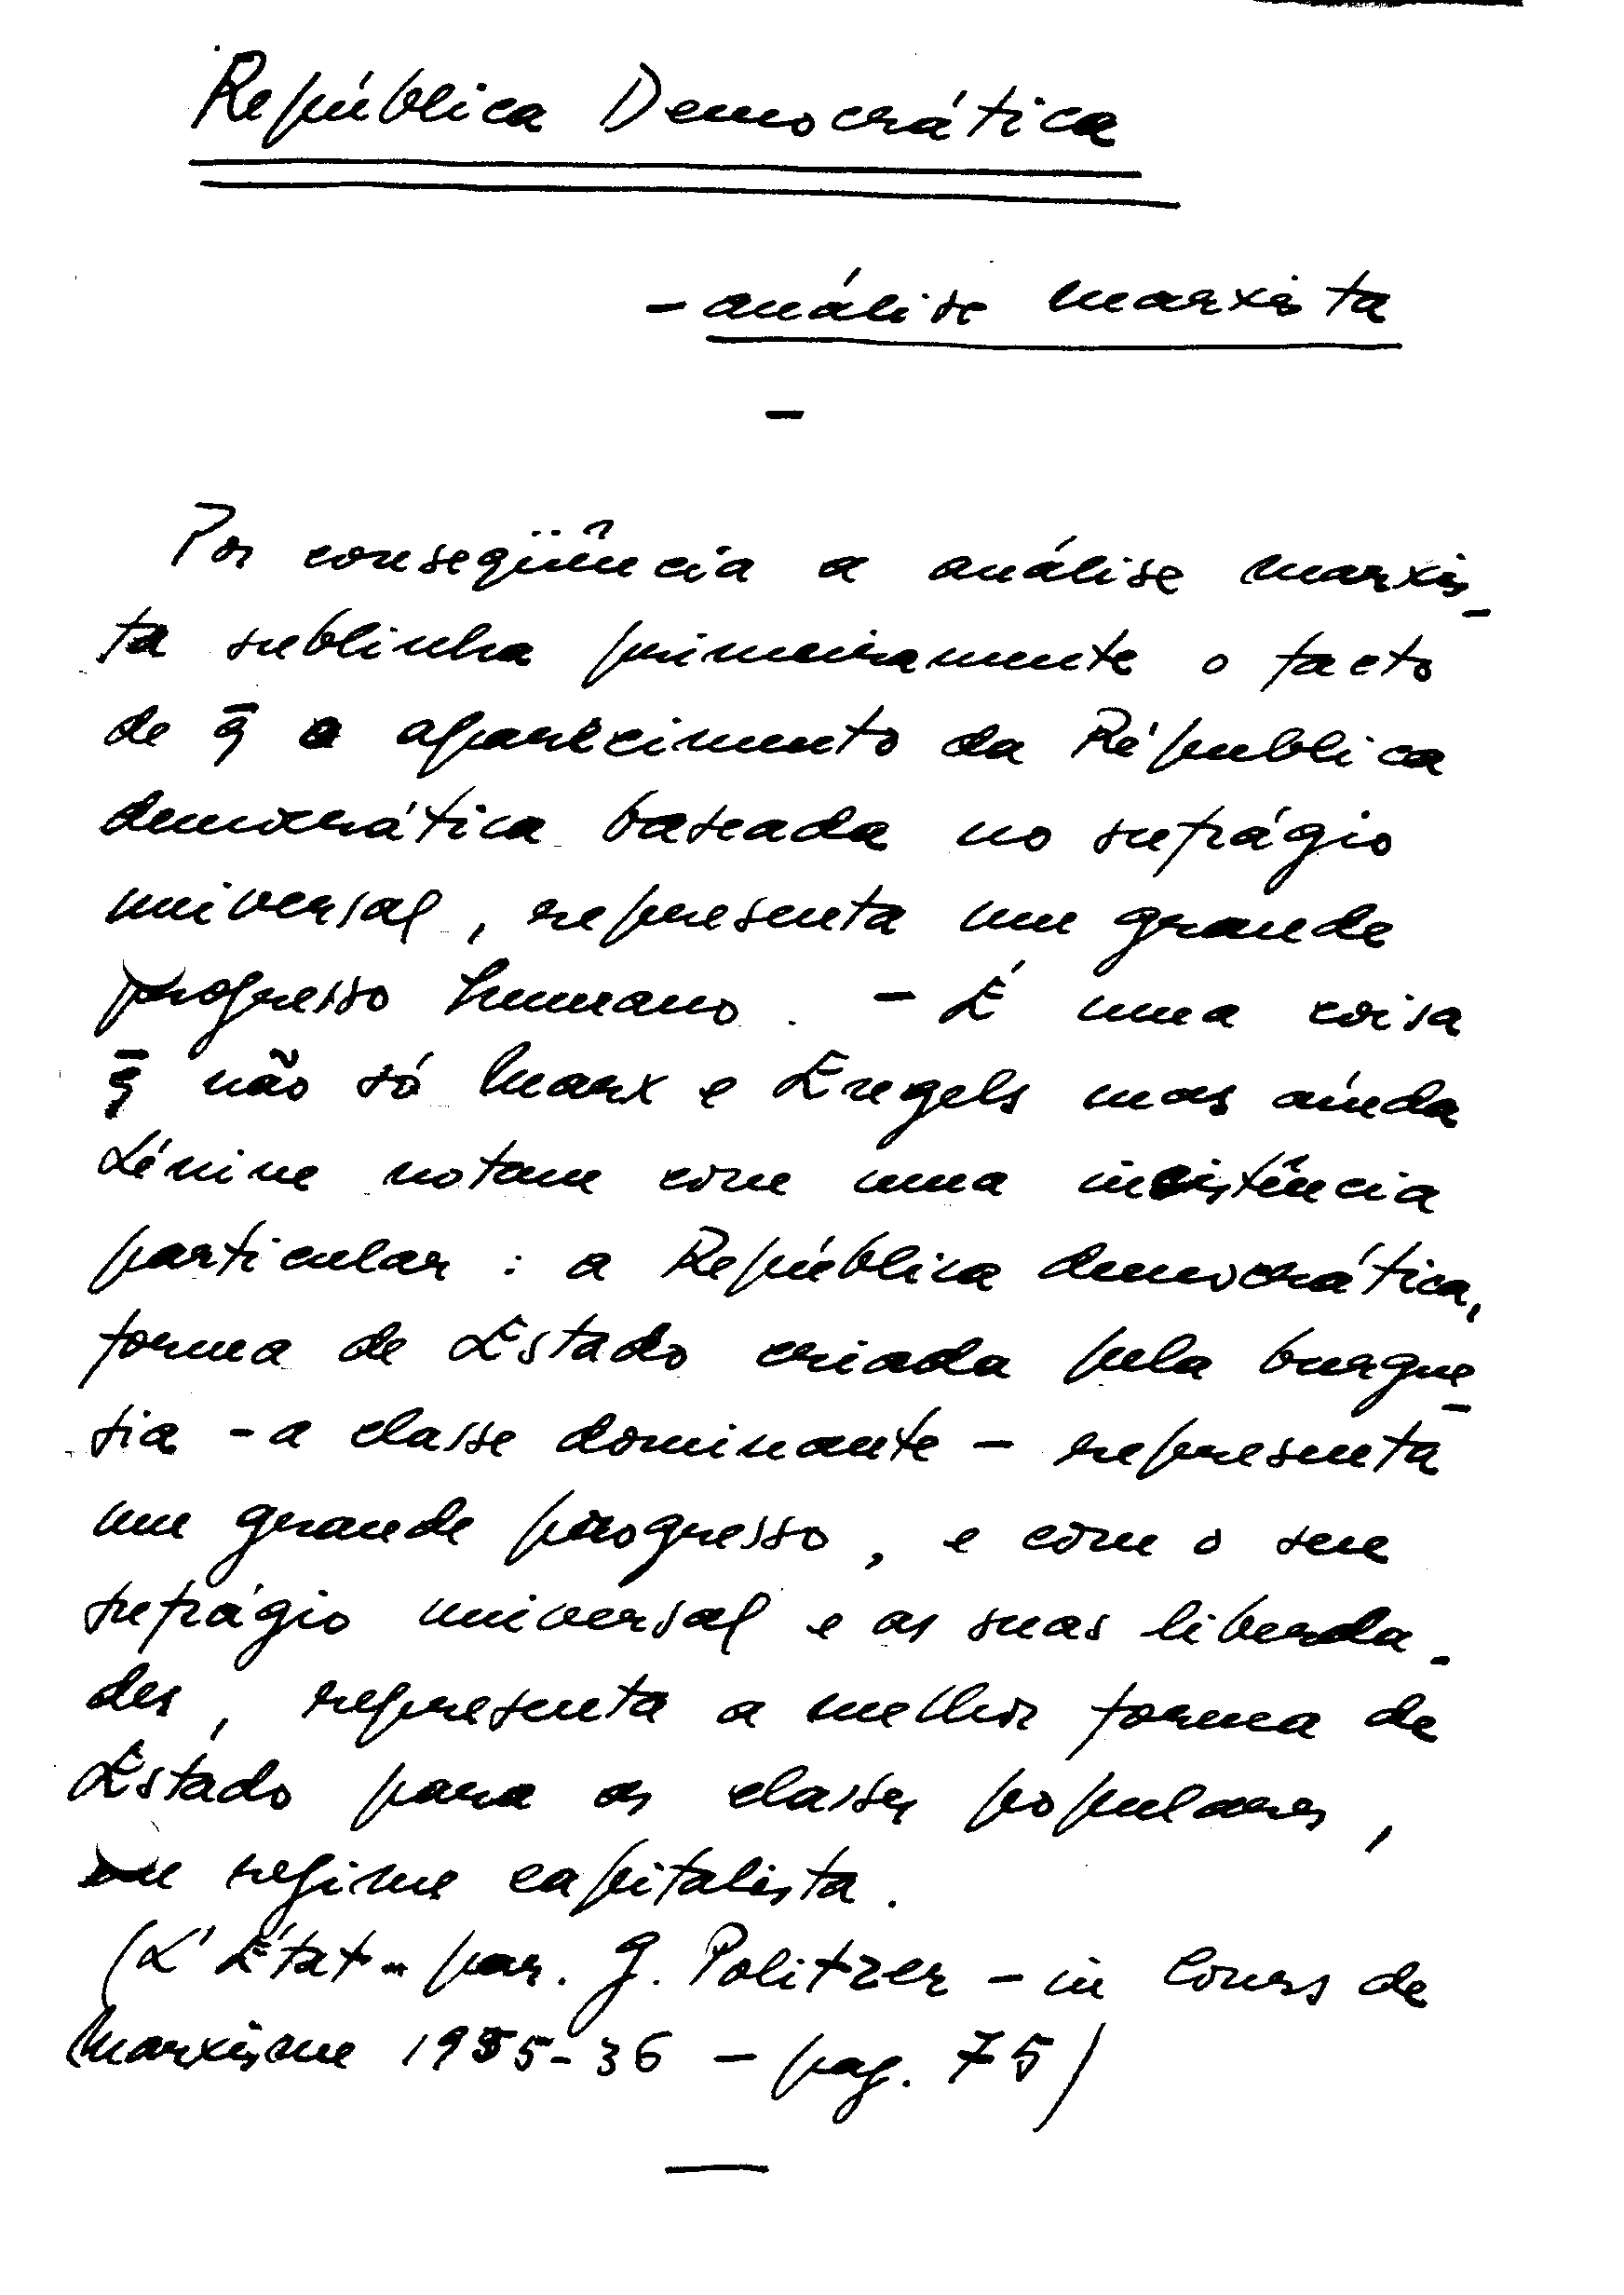 República Democrática
- análise marxista
-
Por conseqüência a análise marxis-
ta sublinha primeiramente o facto
de q̄ o aparecimento da Républica
democrática baseada no sufrágio
universal, representa um grande
progresso humano. - É uma coisa
q̄ não só Marx e Engels mas ainda
Lénine notam com uma insistência
particular: a República democrática,
forma de Estado criada pela burgue-
sia - a classe dominante - representa
um grande progresso, e com o seu
sufrágio universal e as suas liberda-
des, representa a melhor forma de
Estado para as classes populares,
em regime capitalista.
(L'État - par. G. Politzer - in Cours de
Marxisme 1935-36 - pag. 75)